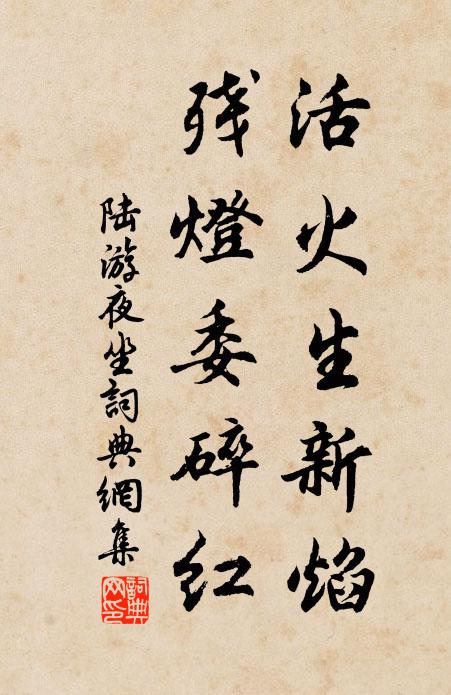 活火生新焰
残燈委碎红
陆游夜坐詞典網集
詞典